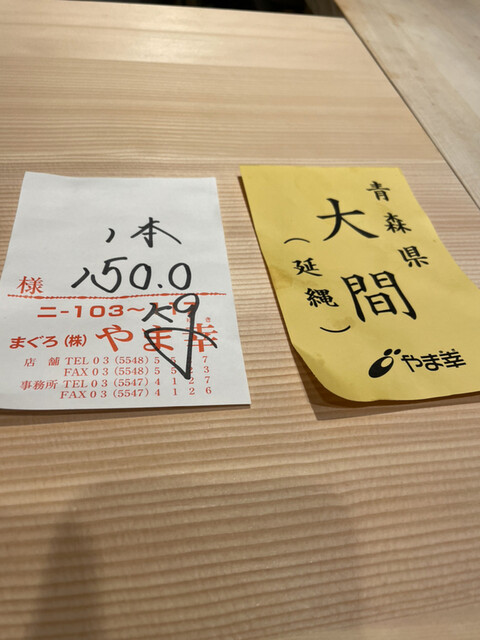 1本
様 150.0
ニ-103〜
まぐろ(株) やま幸
店舗 TEL 03 (5548) 5 7
FAX 03 (5548) 5523
事務所 TEL 03 (5547) 4127
FAX 03 (5547) 4126
青森県
大間
(延縄)
やま幸